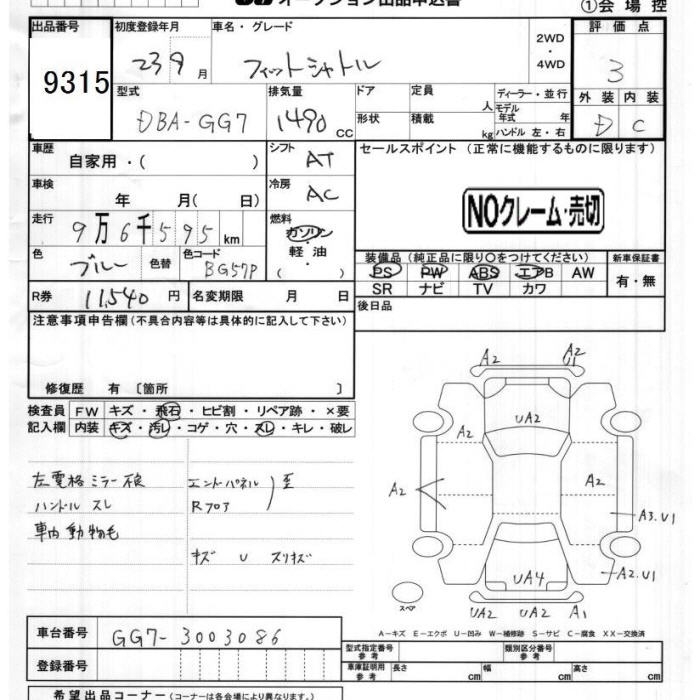 オークション出品申込書
①会場控
出品番号
9315
初度登録年月
23 9 月
車名・グレード
フィットシャトル
2WD
・
4WD
評価点
3
外装 内装
D C
型式
DBA-GG7
排気量
1490 cc
ドア
形状
定員
人
積載
kg
ディーラー・並行
モデル
年式 年
ハンドル 左・右
車歴
自家用・( )
シフト
AT
セールスポイント (正常に機能するものに限ります)
NOクレーム・売切
車検
年 月( 日)
冷房
AC
走行
9万6千595 km
燃料
ガソリン
軽・油
( )
色
ブルー
色替
色コード
BG57P
装備品 (純正品に限り○をつけてください)
PS PW ABS エアB AW
SR ナビ TV カワ
新車保証書
有・無
R券
11,540 円
名変期限 月 日
後日品
注意事項申告欄 (不具合内容等は具体的に記入して下さい)
修復歴 有 〔箇所 〕
検査員
記入欄
FW キズ・飛石・ヒビ割・リペア跡・×要
内装 キズ・汚レ・コゲ・穴・スレ・キレ・破レ
左電格ミラー不良
ハンドル スレ
車内動物毛
エンドパネル
Rフロア
キズ U スリキズ
A2
A2
U1
UA2
A2
A2
A2
A3.U1
A2.U1
UA4
UA2 UA2 A1
スペア
A-キズ E-エクボ U-凹み W-補修跡 S-サビ C-腐食 XX-交換済
車台番号
GG7-3003086
登録番号
型式指定番号
参考
類別区分番号
参考
車庫証明用
参考
長さ cm 幅 cm 高さ cm
希望出品コーナー (コーナーは各会場により異なります。)